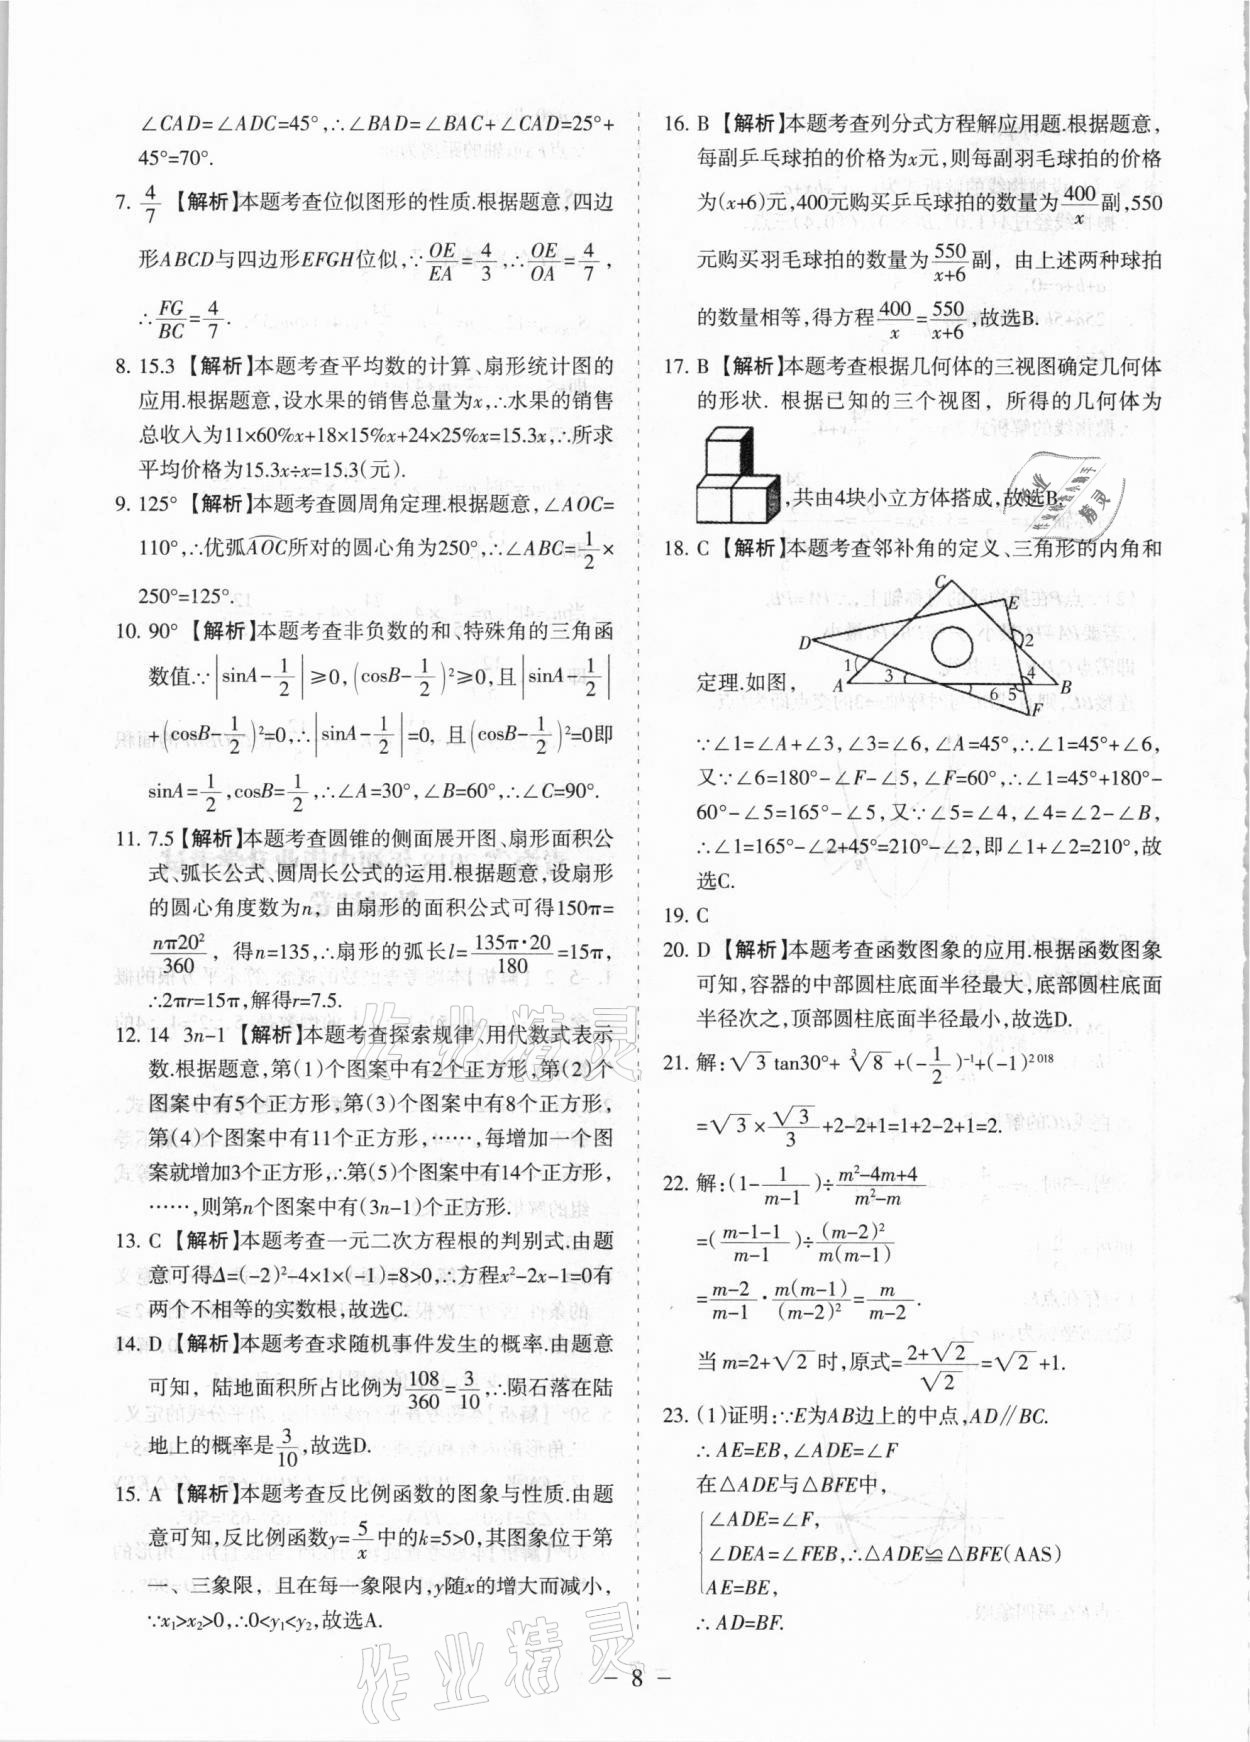 ∠CAD=∠ADC=45°,∴∠BAD=∠BAC+∠CAD=25°+
45°=70°.
7. 4/7 【解析】本题考查位似图形的性质.根据题意,四边
形ABCD与四边形EFGH位似,∵OE/EA=4/3,∴OE/OA=4/7,
∴FG/BC=4/7.
8. 15.3 【解析】本题考查平均数的计算、扇形统计图的
应用.根据题意,设水果的销售总量为x,∴水果的销售
总收入为11×60%x+18×15%x+24×25%x=15.3x,∴所求
平均价格为15.3x÷x=15.3(元).
9. 125° 【解析】本题考查圆周角定理.根据题意,∠AOC=
110°,∴优弧AOC所对的圆心角为250°,∴∠ABC=1/2×
250°=125°.
10. 90° 【解析】本题考查非负数的和、特殊角的三角函
数值∵|sinA-1/2|≥0,(cosB-1/2)²≥0,且|sinA-1/2|
+(cosB-1/2)²=0,∴|sinA-1/2|=0, 且(cosB-1/2)²=0即
sinA=1/2,cosB=1/2,∴∠A=30°,∠B=60°,∴∠C=90°.
11. 7.5【解析】本题考查圆锥的侧面展开图、扇形面积公
式、弧长公式、圆周长公式的运用.根据题意,设扇形
的圆心角度数为n, 由扇形的面积公式可得150π=
nπ20²/360, 得n=135,∴扇形的弧长l=135π·20/180=15π,
∴2πr=15π,解得r=7.5.
12. 14 3n-1 【解析】本题考查探索规律、用代数式表示
数.根据题意,第(1)个图案中有2个正方形,第(2)个
图案中有5个正方形,第(3)个图案中有8个正方形,
第(4)个图案中有11个正方形,……,每增加一个图
案就增加3个正方形,∴第(5)个图案中有14个正方形,
……,则第n个图案中有(3n-1)个正方形.
13. C 【解析】本题考查一元二次方程根的判别式.由题
意可得Δ=(-2)²-4×1×(-1)=8>0,∴方程x²-2x-1=0有
两个不相等的实数根,故选C.
14. D 【解析】本题考查求随机事件发生的概率.由题意
可知, 陆地面积所占比例为108/360=3/10,∴陨石落在陆
地上的概率是3/10,故选D.
15. A 【解析】本题考查反比例函数的图象与性质.由题
意可知,反比例函数y=5/x中的k=5>0,其图象位于第
一、三象限, 且在每一象限内,y随x的增大而减小,
∵x₁>x₂>0,∴0<y₁<y₂,故选A.
16. B 【解析】本题考查列分式方程解应用题.根据题意,
每副乒乓球拍的价格为x元,则每副羽毛球拍的价格
为(x+6)元,400元购买乒乓球拍的数量为400/x副,550
元购买羽毛球拍的数量为550/(x+6)副, 由上述两种球拍
的数量相等,得方程400/x=550/(x+6),故选B.
17. B 【解析】本题考查根据几何体的三视图确定几何体
的形状. 根据已知的三个视图, 所得的几何体为
,共由4块小立方体搭成,故选B.
18. C 【解析】本题考查邻补角的定义、三角形的内角和
定理.如图,
C
E
D
2
1
3
4
A
6
5
B
F
∵∠1=∠A+∠3,∠3=∠6,∠A=45°,∴∠1=45°+∠6,
又∵∠6=180°-∠F-∠5,∠F=60°,∴∠1=45°+180°-
60°-∠5=165°-∠5, 又∵∠5=∠4,∠4=∠2-∠B,
∴∠1=165°-∠2+45°=210°-∠2,即∠1+∠2=210°,故
选C.
19. C
20. D 【解析】本题考查函数图象的应用.根据函数图象
可知,容器的中部圆柱底面半径最大,底部圆柱底面
半径次之,顶部圆柱底面半径最小,故选D.
21. 解:√3tan30°+∛8+(-1/2)⁻¹+(-1)²⁰¹⁸
=√3×√3/3+2-2+1=1+2-2+1=2.
22. 解:(1-1/(m-1))÷(m²-4m+4)/(m²-m)
=((m-1-1)/(m-1))÷(m-2)²/(m(m-1))
=(m-2)/(m-1)·m(m-1)/(m-2)²=m/(m-2).
当m=2+√2时,原式=(2+√2)/√2=√2+1.
23. (1)证明:∵E为AB边上的中点,AD∥BC.
∴AE=EB,∠ADE=∠F
在△ADE与△BFE中,
∠ADE=∠F,
∠DEA=∠FEB,∴△ADE≌△BFE(AAS)
AE=BE,
∴AD=BF.
– 8 –
作业精灵
作业精灵